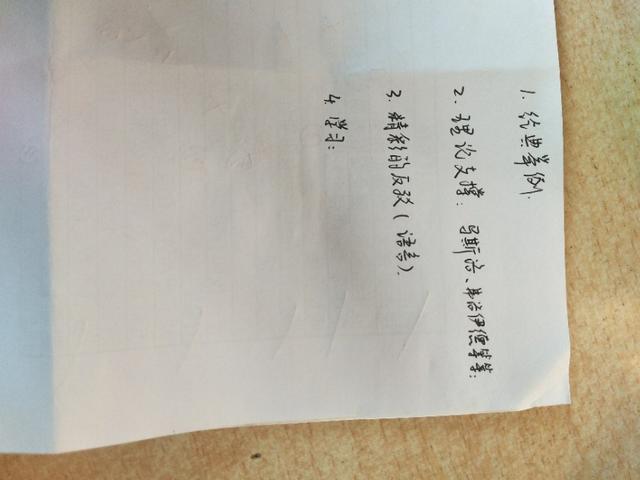 1. 经典举例.
2. 理论支撑: 马斯洛、弗洛伊德等等:
3. 精彩的反驳(语言).
4. 学习: